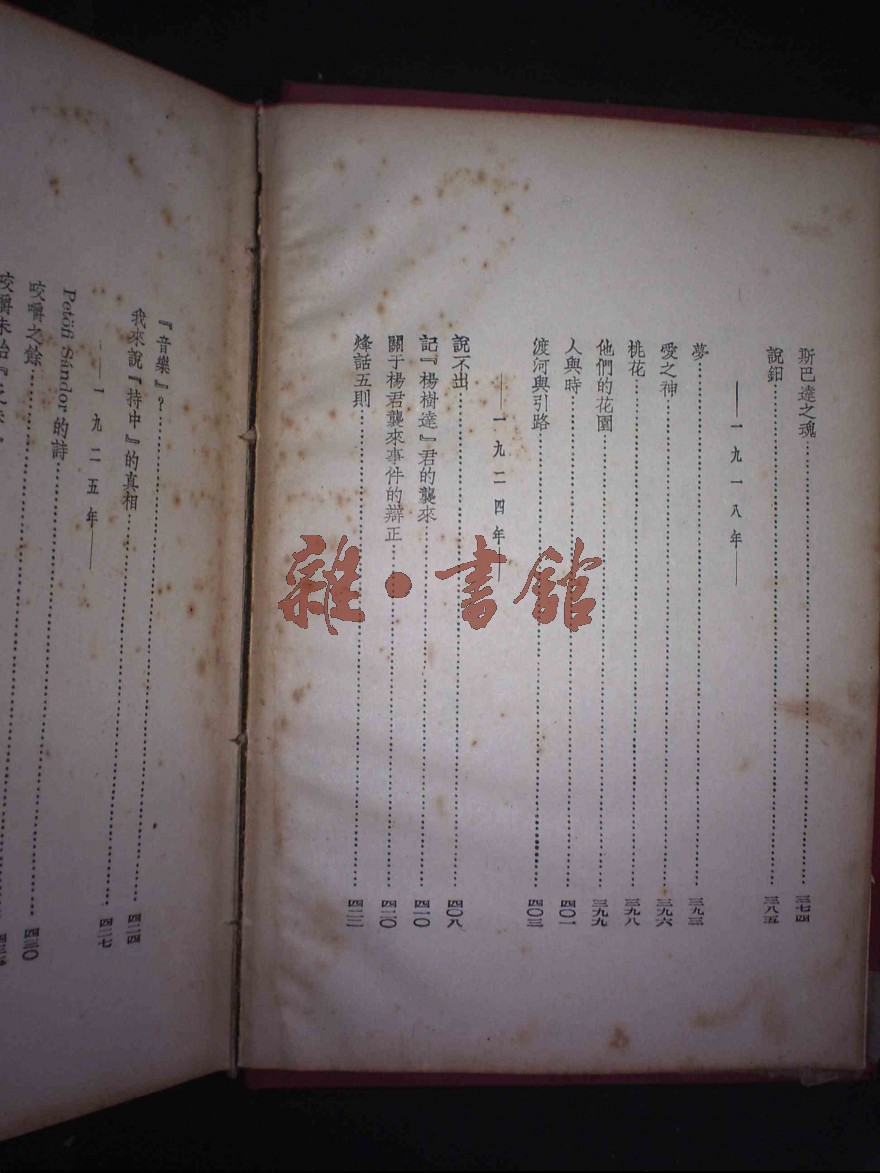 斯巴達之魂……三七四
說鈤……三八五
——一九一八年——
夢……三九三
愛之神……三九六
桃花……三九八
他們的花園……三九九
人與時……四〇一
渡河與引路……四〇三
——一九二四年——
說不出……四〇八
記『楊樹達』君的襲來……四一〇
關于楊君襲來事件的辯正……四二〇
烽話五則……四二二
『音樂』？……四二四
我來說『持中』的真相……四二七
——一九二五年——
Petöfi Sándor 的詩
咬嚼之餘……四三〇
咬嚼未始『乏味』
雜·書館